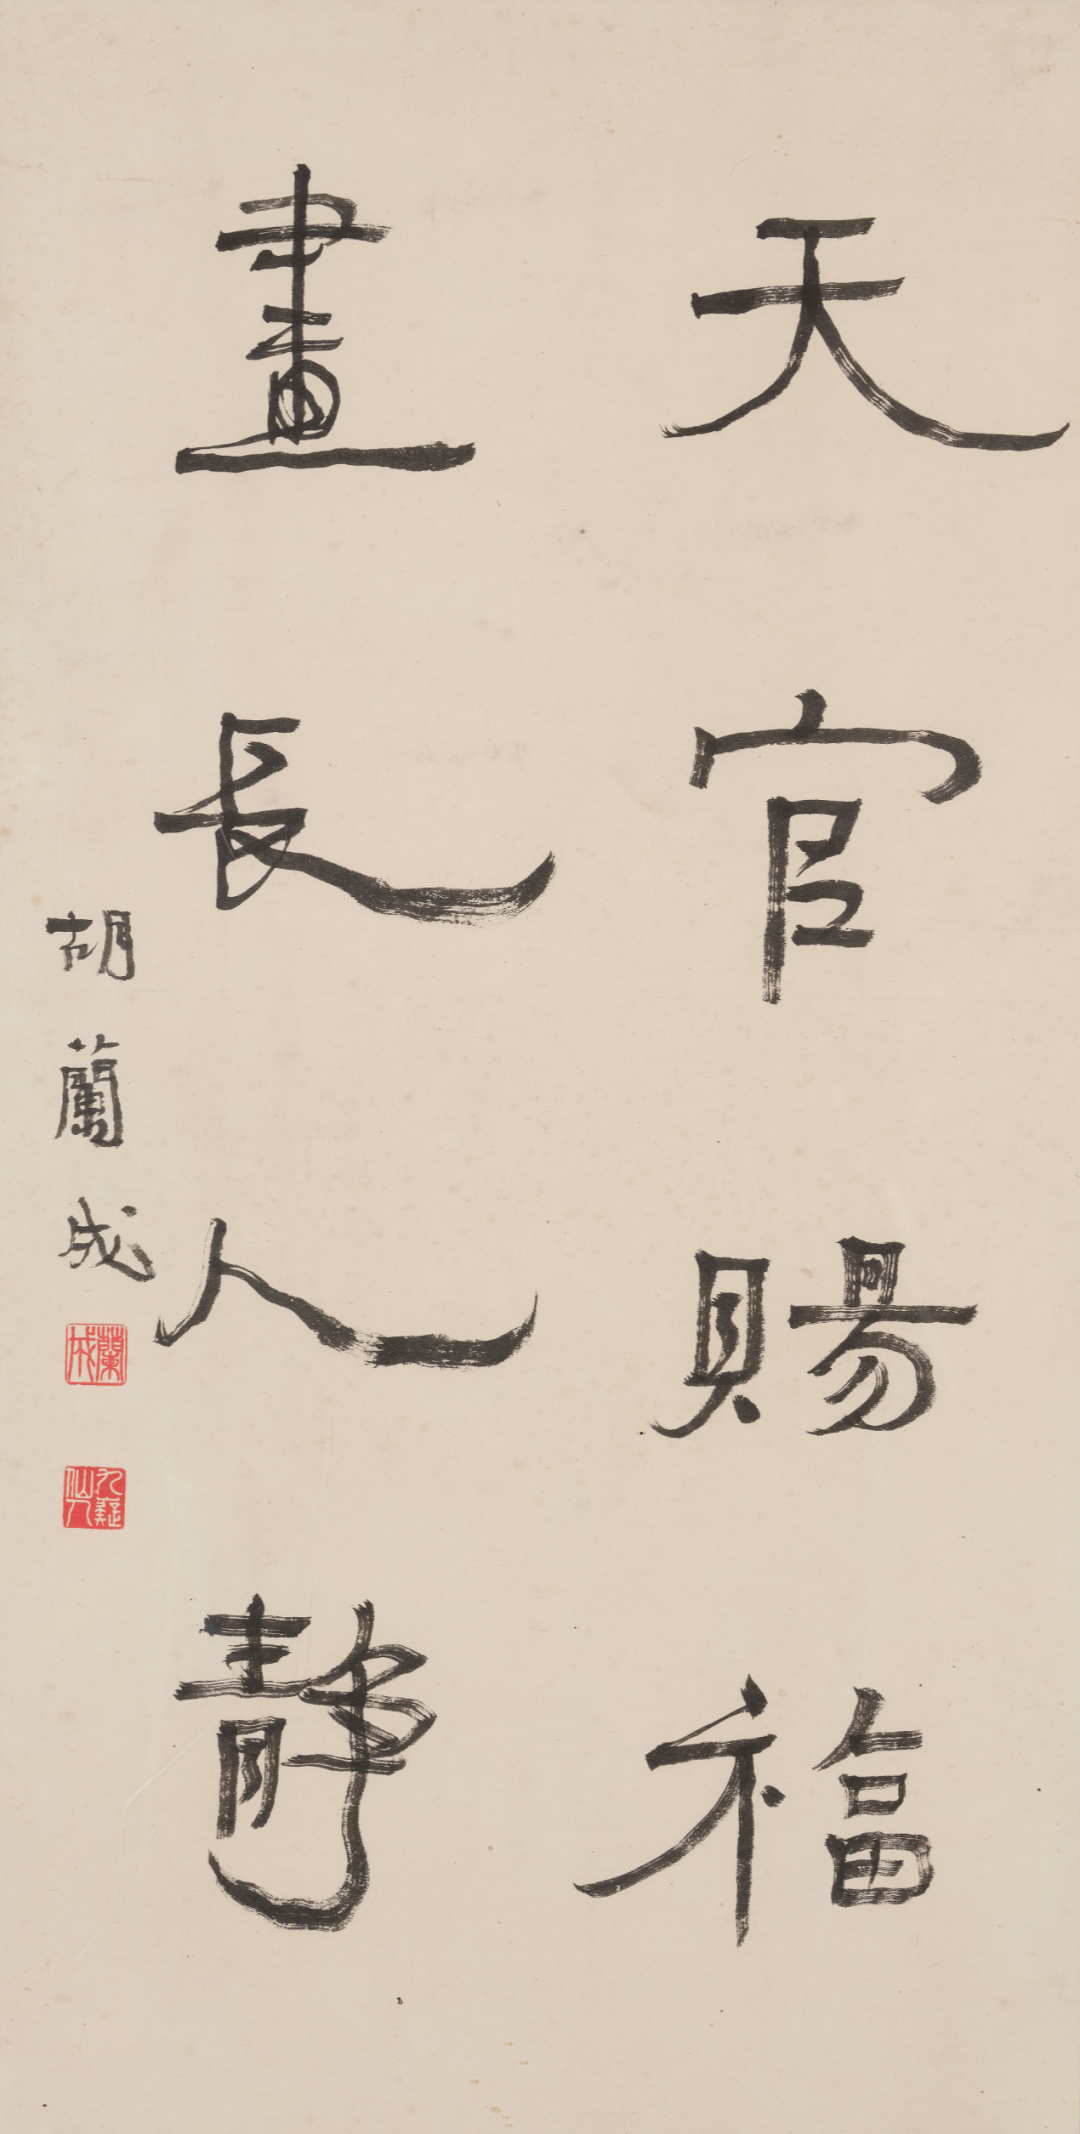 天官賜福
畫長人靜
胡蘭成
蘭成
九疑仙人